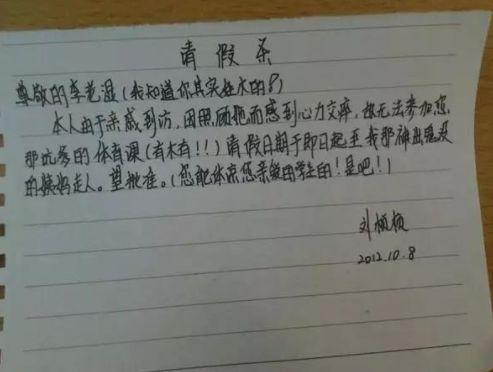 请假条
尊敬的李老湿(我知道你其实姓木的!)
本人由于亲戚到访,因照顾她而感到心力交瘁,故无法参加您
那坑爹的体育课(有木有!!)请假日期于即日起至我那神出鬼没
的姨妈走人。望批准。(您能体谅您亲爱的学生的!是吧!)
刘
2012.10.8